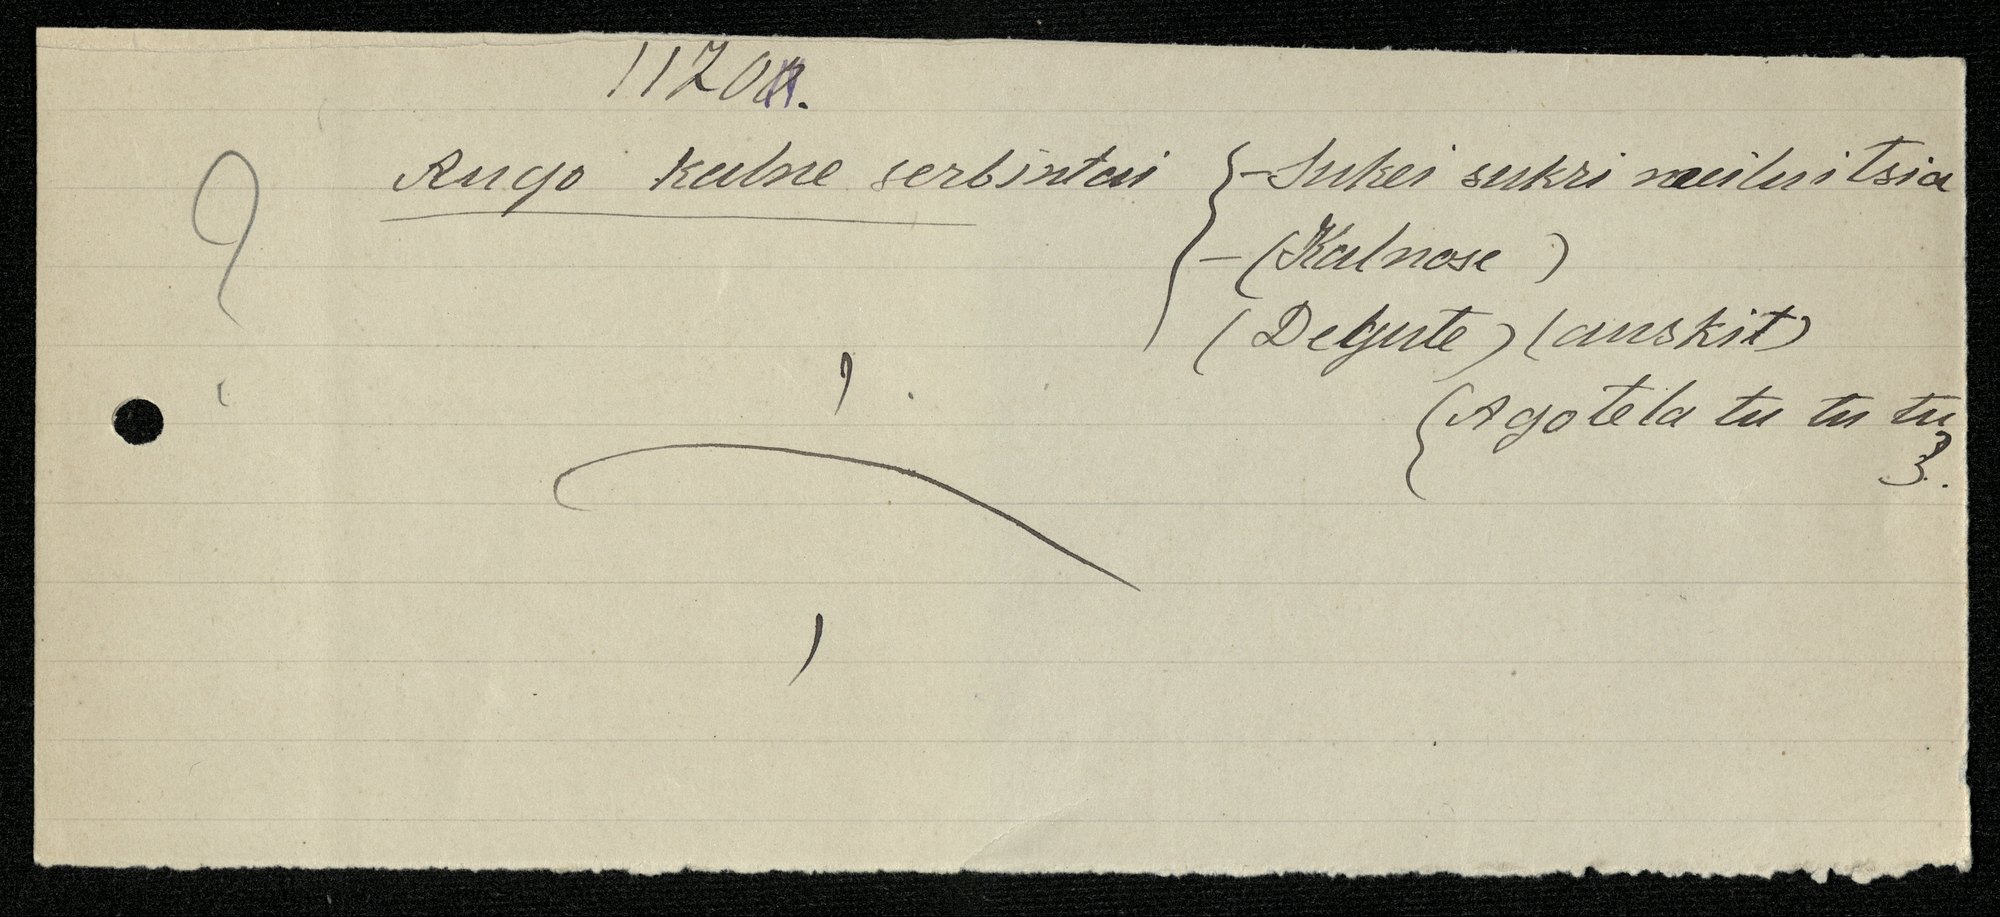 1170a.
?
Augo kalne serbintai { - Sukei sukri meiluitsia
- (Kalnose)
(Degute) (auskit)
{ Agotela tu tu tu
3.